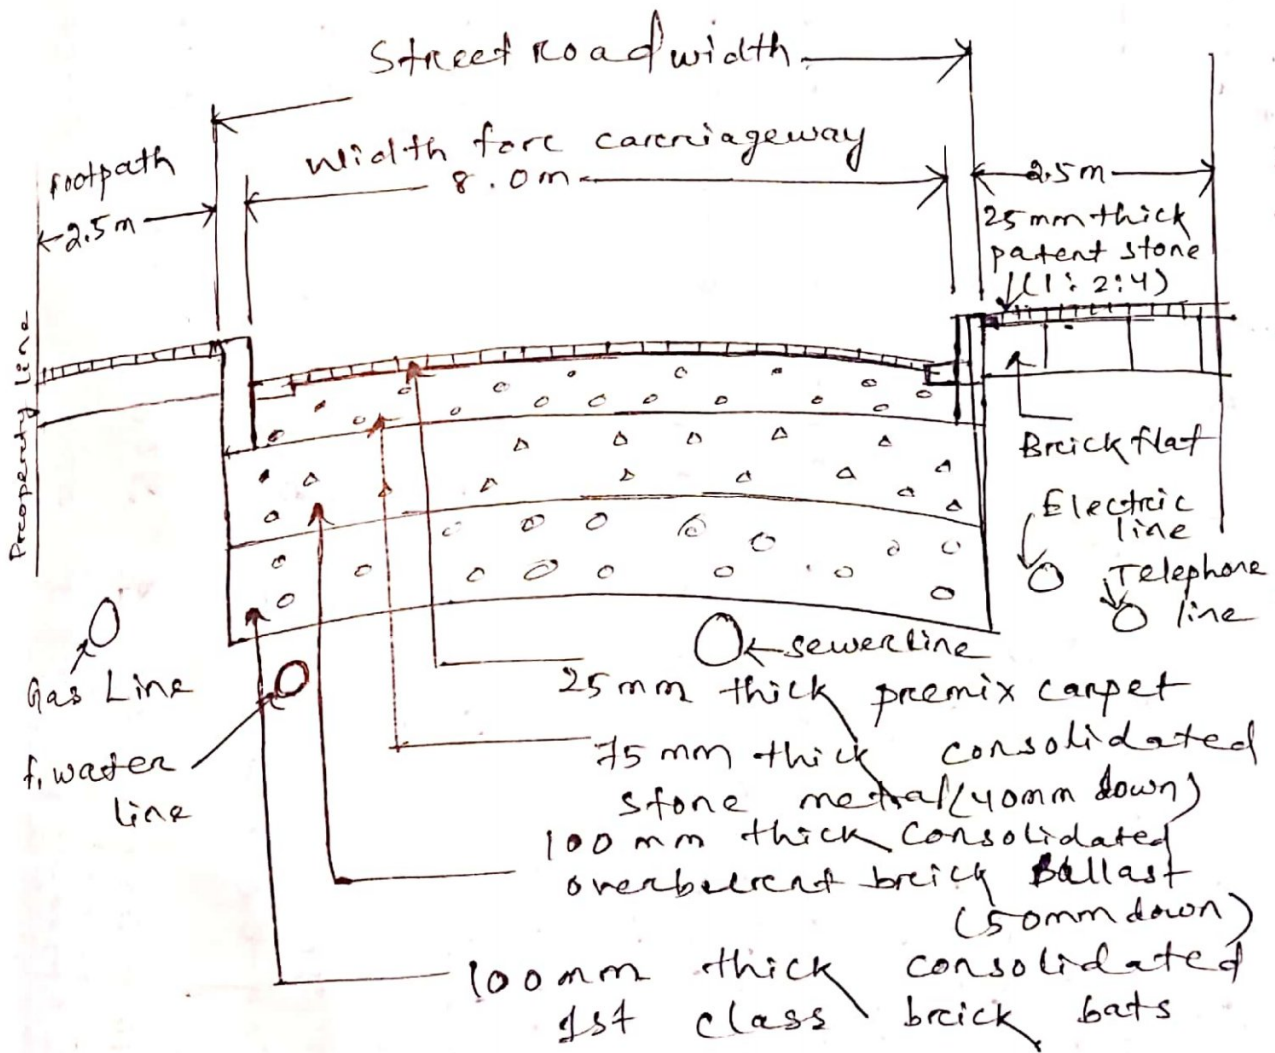 Street road width
Width forc carcriageway
8.0m
footpath
2.5m
2.5m
25mm thick
patent stone
(1:2:4)
Procperty line
Breick flat
Electric
line
Telephone
line
Gas Line
f. water
line
sewer line
25mm thick premix carpet
75mm thick consolidated
stone metal (40mm down)
100mm thick consolidated
overburent breick Ballast
(50mm down)
100mm thick consolidated
1st class breick bats